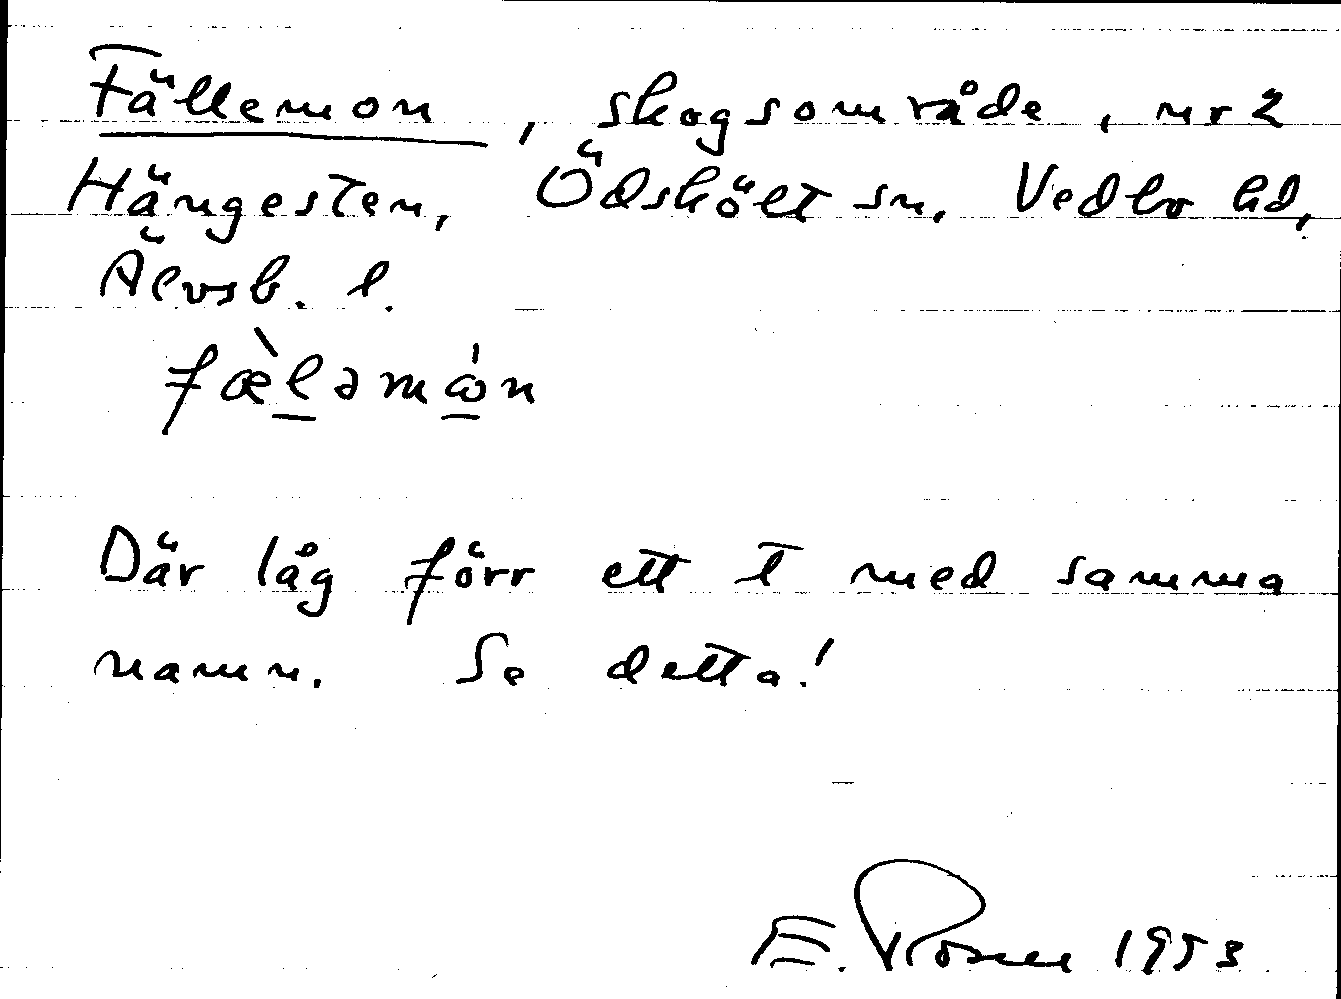 Fällemon, skogsområde, nr 2
Hängesten, Ödskölt sn. Vedbo hd,
Älvsb. l.
fæ̀lǝmώn
Där låg förr ett t med samma
namn. Se detta!
E. Rosell 1953